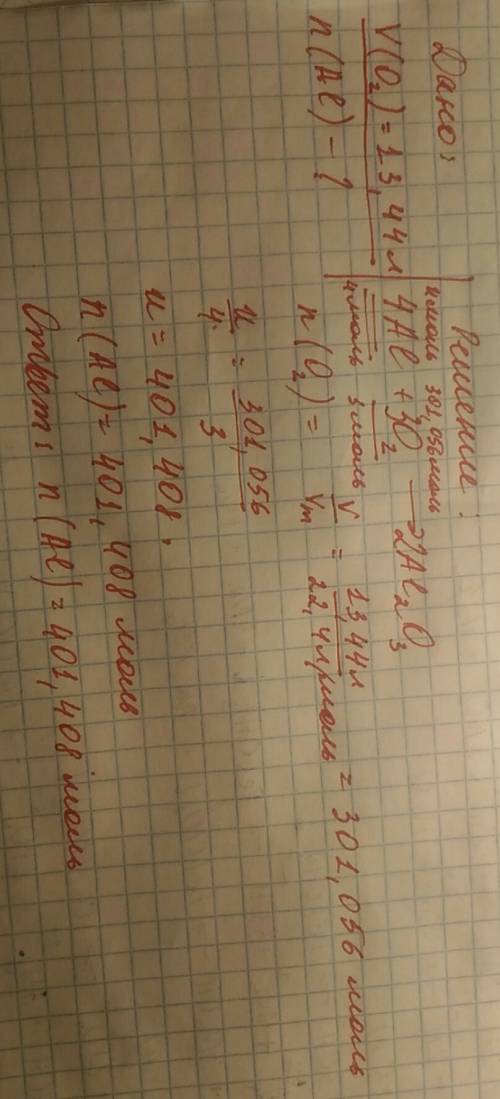 Дано:
V(O₂) = 13,44 л
n(Al) - ?
Решение:
n моль 301,056 моль
4Al + 3O₂ → 2Al₂O₃
4 моль 3 моль
n(O₂) = V/Vm = 13,44 л/22,4 л/моль = 301,056 моль
n/4 = 301,056/3
n = 401,408.
n(Al) = 401,408 моль
Ответ: n(Al) = 401,408 моль